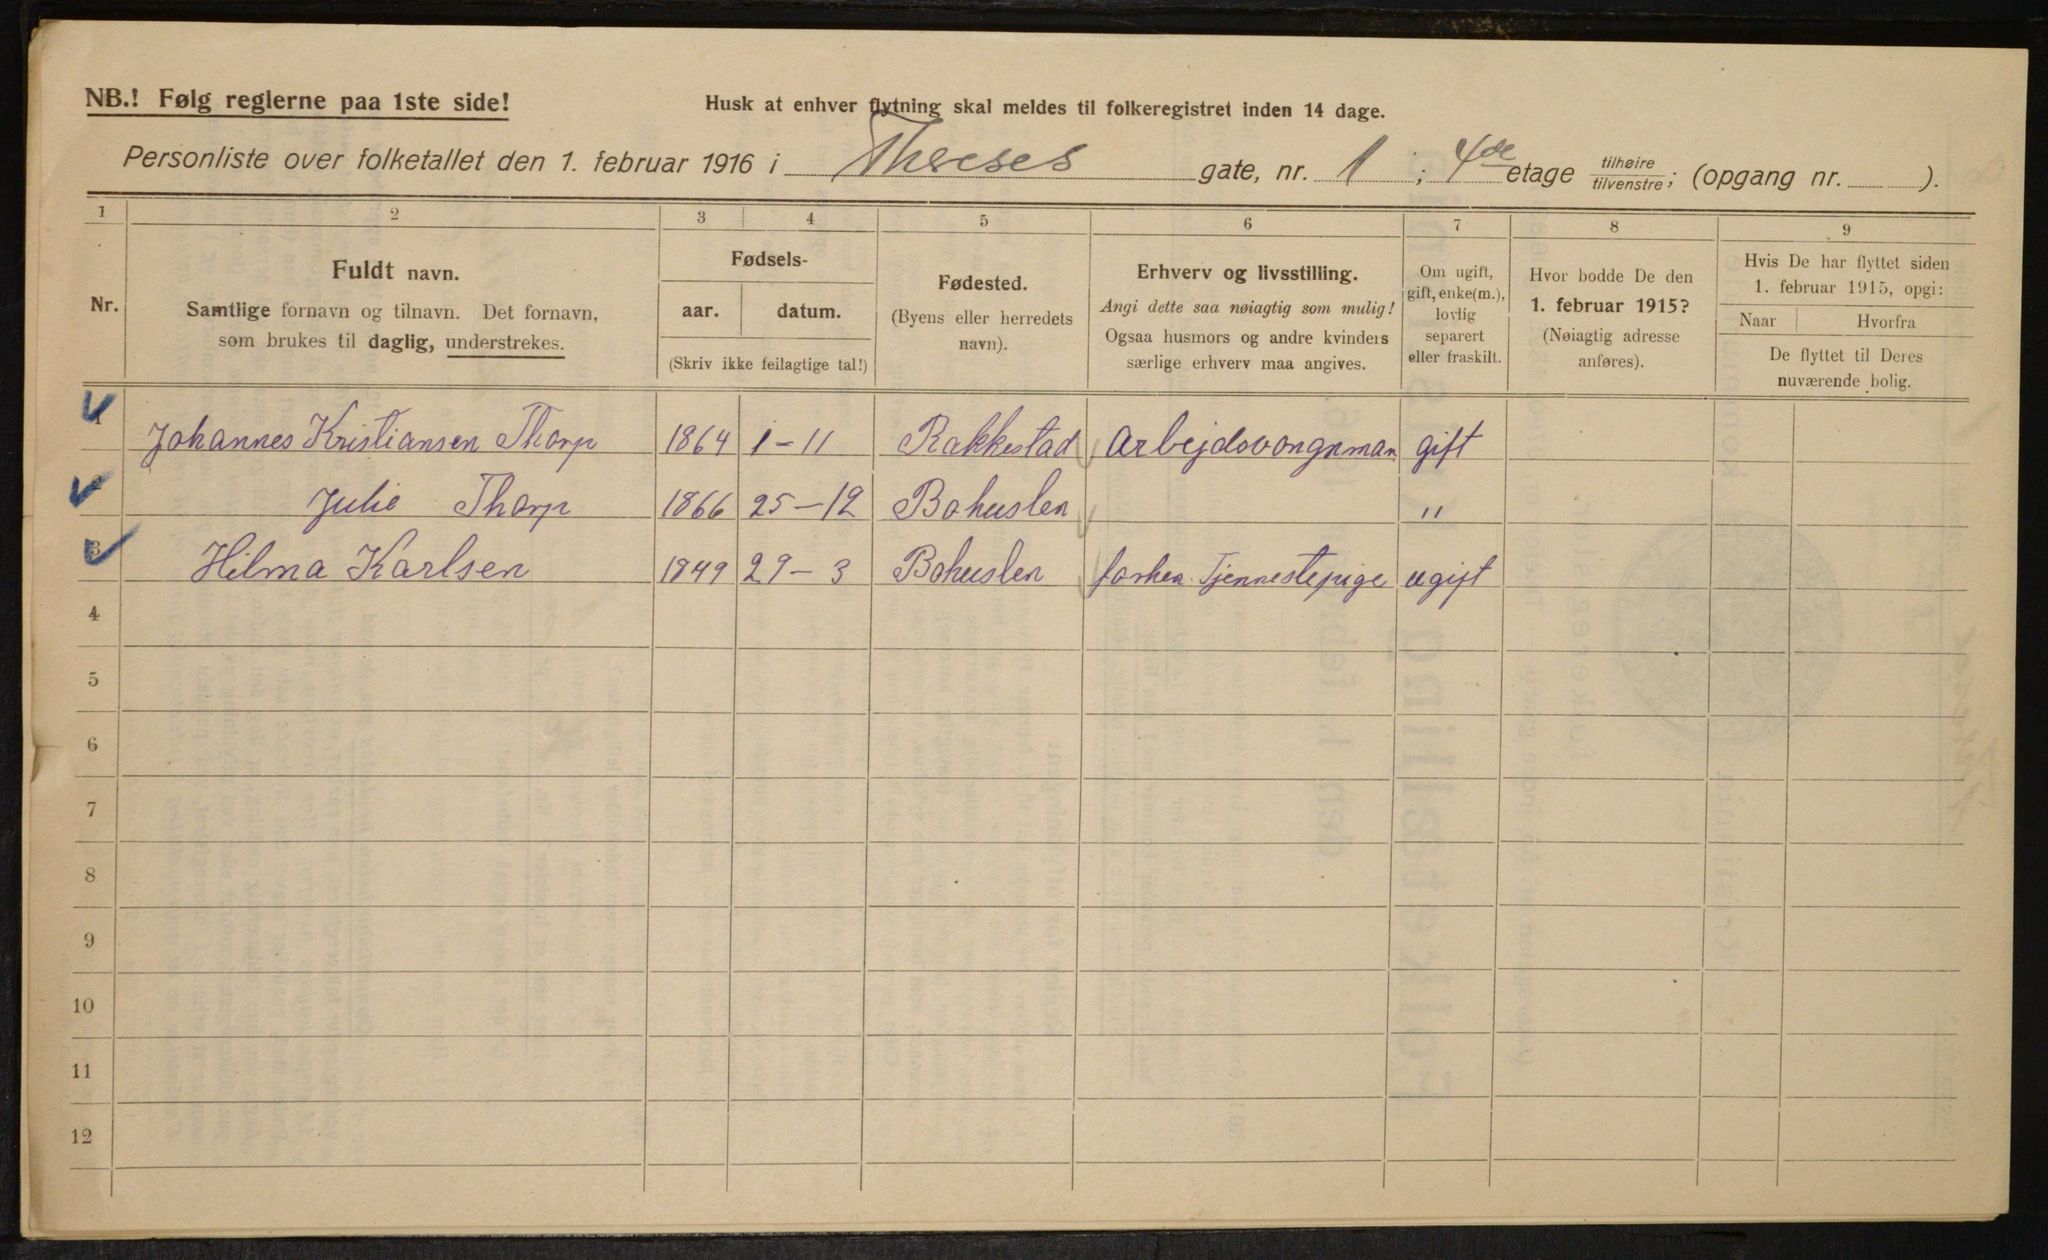 NB.! Følg reglerne paa 1ste side!
Husk at enhver flytning skal meldes til folkeregistret inden 14 dage.
Personliste over folketallet den 1. februar 1916 i Thereses gate, nr. 1 ; 4de etage tilhøire/tilvenstre; (opgang nr. ).
1 2 3 4 5 6 7 8 9
Nr.
Fuldt navn.
Samtlige fornavn og tilnavn. Det fornavn,
som brukes til daglig, understrekes.
Fødsels-
aar. datum.
(Skriv ikke feilagtige tal!)
Fødested.
(Byens eller herredets
navn).
Erhverv og livsstilling.
Angi dette saa nøiagtig som mulig!
Ogsaa husmors og andre kvinders
særlige erhverv maa angives.
Om ugift,
gift, enke(m.),
lovlig
separert
eller fraskilt.
Hvor bodde De den
1. februar 1915?
(Nøiagtig adresse
anføres).
Hvis De har flyttet siden
1. februar 1915, opgi:
Naar Hvorfra
De flyttet til Deres
nuværende bolig.
1 Johannes Kristiansen Thorp 1864 1-11 Rakkestad Arbejdsvongnman gift
2 Julie Thorp 1866 25-12 Bohuslen "
3 Hilma Karlsen 1849 29-3 Bohuslen forhen Tjennestepige ugift
4
5
6
7
8
9
10
11
12